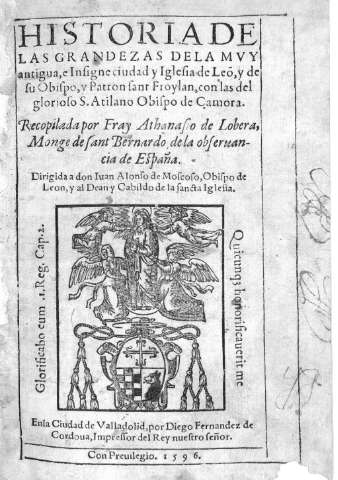 HISTORIA DE
LAS GRANDEZAS DE LA MVY
antigua, e Insigne ciudad y Iglesia de Leõ, y de
su Obispo, y Patron sant Froylan, con las del
glorioso S. Atilano Obispo de Çamora.
Recopilada por Fray Athanasio de Lobera,
Monge de sant Bernardo, de la obseruan-
cia de España.
Dirigida a don Iuan Alonso de Moscoso, Obispo de
Leon, y al Dean y Cabildo de la sancta Iglesia.
Glorificabo eum .1. Reg. Cap. 2.
Quicunqȝ honorificauerit me
En la Ciudad de Valladolid, por Diego Fernandez de
Cordoua, Impressor del Rey nuestro señor.
Con Preuilegio. 1596.